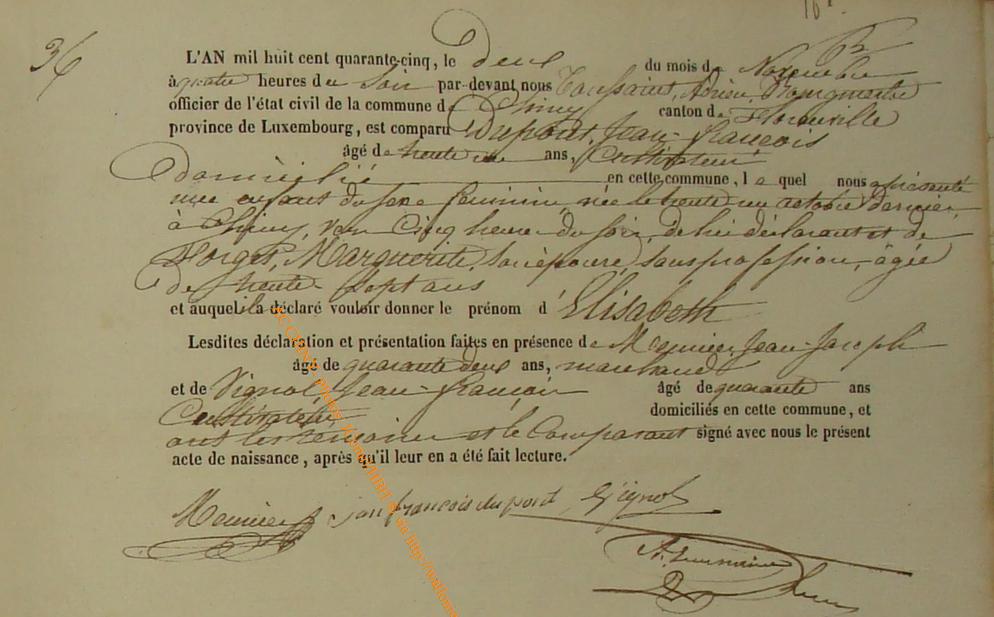 36
L'AN mil huit cent quarante-cinq, le deux du mois de Novembre
à quatre heures du Soir par-devant nous Toussaint, Adrien,
officier de l'état civil de la commune de Chiny canton de Florenville
province de Luxembourg, est comparu Dupont, Jean-françois
âgé de trente ans, Cultivateur
domicilié en cette commune, le quel nous a présenté
une enfant du sexe féminin, née le trente un octobre dernier,
à Chiny, vers Cinq heures du soir, de lui déclarant et de
Forget, Marguerite, son épouse, sans profession, âgée
de trente Sept ans
et auquel il a déclaré vouloir donner le prénom d'Elisabeth
Lesdites déclaration et présentation faites en présence de Meunier Jean-Joseph
âgé de quarante deux ans, marchand
et de Gignol, Jean-françois âgé de quarante ans
Cultivateur, domiciliés en cette commune, et
ont les témoins et le Comparant signé avec nous le présent
acte de naissance, après qu'il leur en a été fait lecture.
Meunier jan françois dupont Gignol